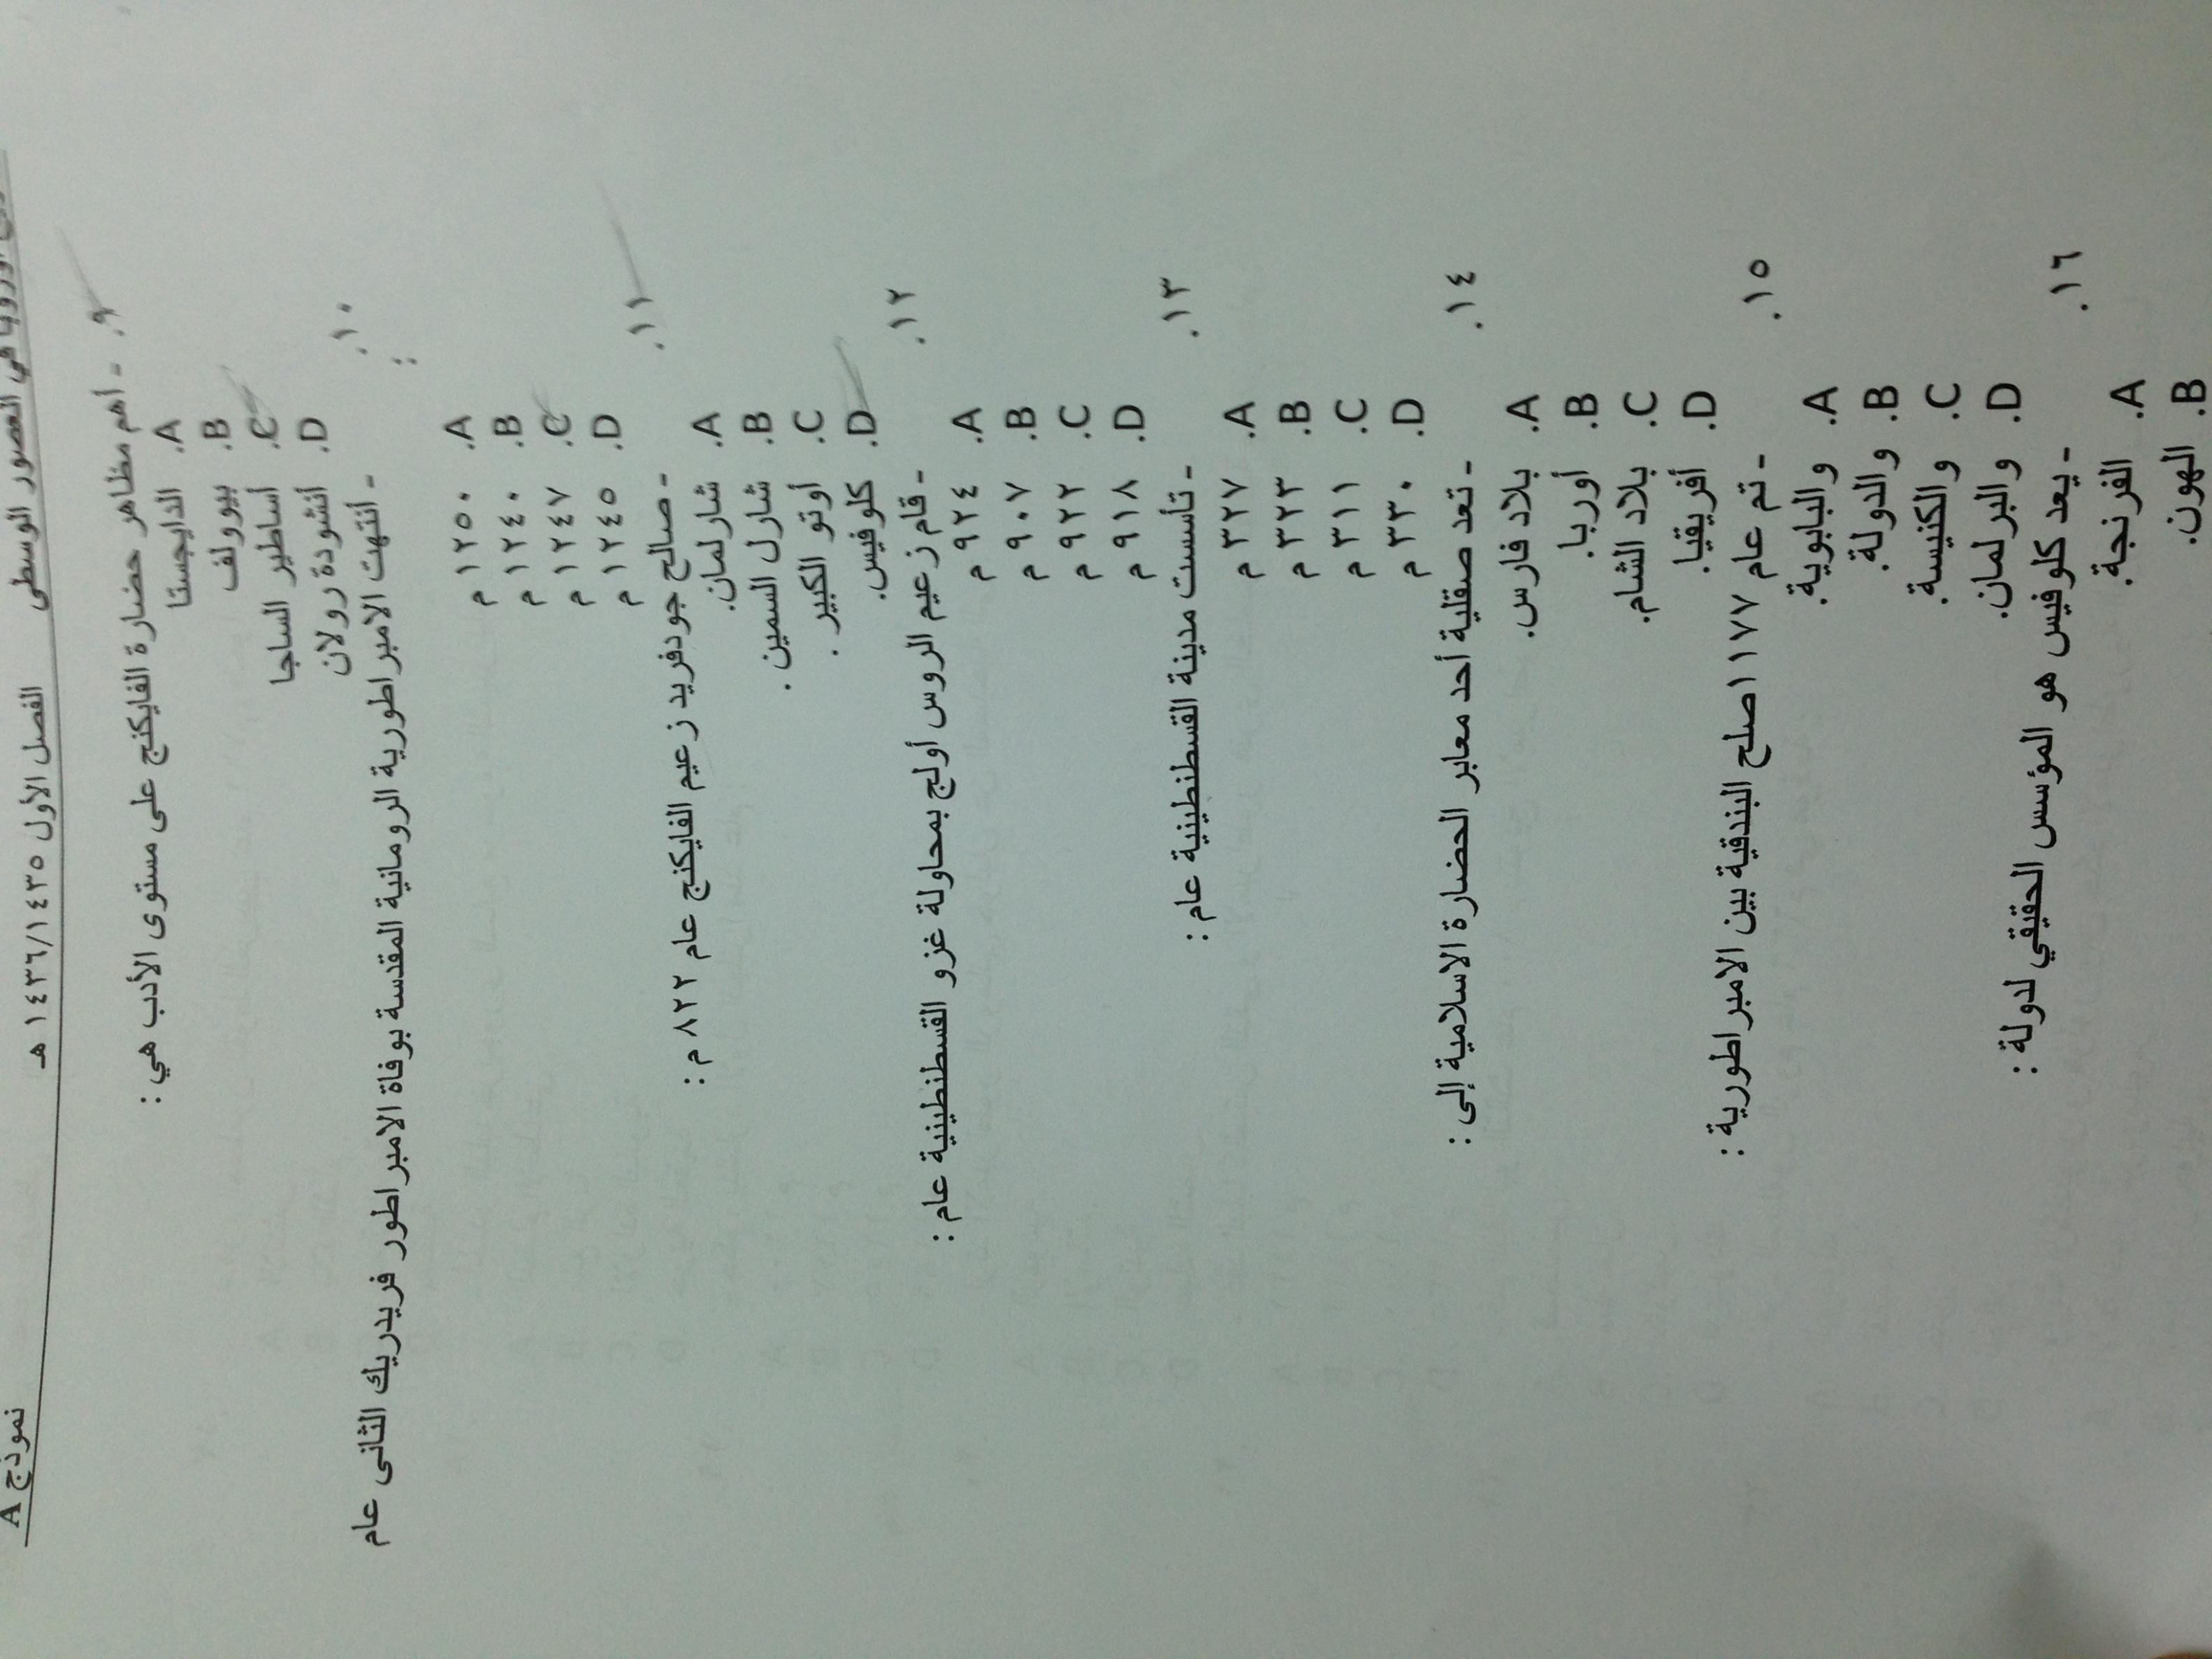 في العصور الوسطى الفصل الأول ١٤٣٥/١٤٣٦ هـ نموذج A
٩. - أهم مظاهر حضارة الفايكنج على مستوى الأدب هي :
A. الدايجستا
B. بيوولف
C. أساطير الساجا
D. أنشودة رولان
١٠. - أنتهت الامبراطورية الرومانية المقدسة بوفاة الامبراطور فريدريك الثانى عام
:
A. ١٢٥٠ م
B. ١٢٤٠ م
C. ١٢٤٧ م
D. ١٢٤٥ م
١١. - صالح جودفريد زعيم الفايكنج عام ٨٢٢ م :
A. شارلمان.
B. شارل السمين .
C. أوتو الكبير .
D. كلوفيس.
١٢. - قام زعيم الروس أوليج بمحاولة غزو القسطنطينية عام :
A. ٩٢٤ م
B. ٩٠٧ م
C. ٩٢٢ م
D. ٩١٨ م
١٣. - تأسست مدينة القسطنطينية عام :
A. ٣٢٧ م
B. ٣٢٣ م
C. ٣١١ م
D. ٣٣٠ م
١٤. - تعد صقلية أحد معابر الحضارة الاسلامية إلى :
A. بلاد فارس.
B. أوربا.
C. بلاد الشام.
D. أفريقيا.
١٥. - تم عام ١١٧٧ صلح البندقية بين الامبراطورية :
A. والبابوية.
B. والدولة.
C. والكنيسة.
D. والبرلمان.
١٦. - يعد كلوفيس هو المؤسس الحقيقي لدولة :
A. الفرنجة.
B. الهون.